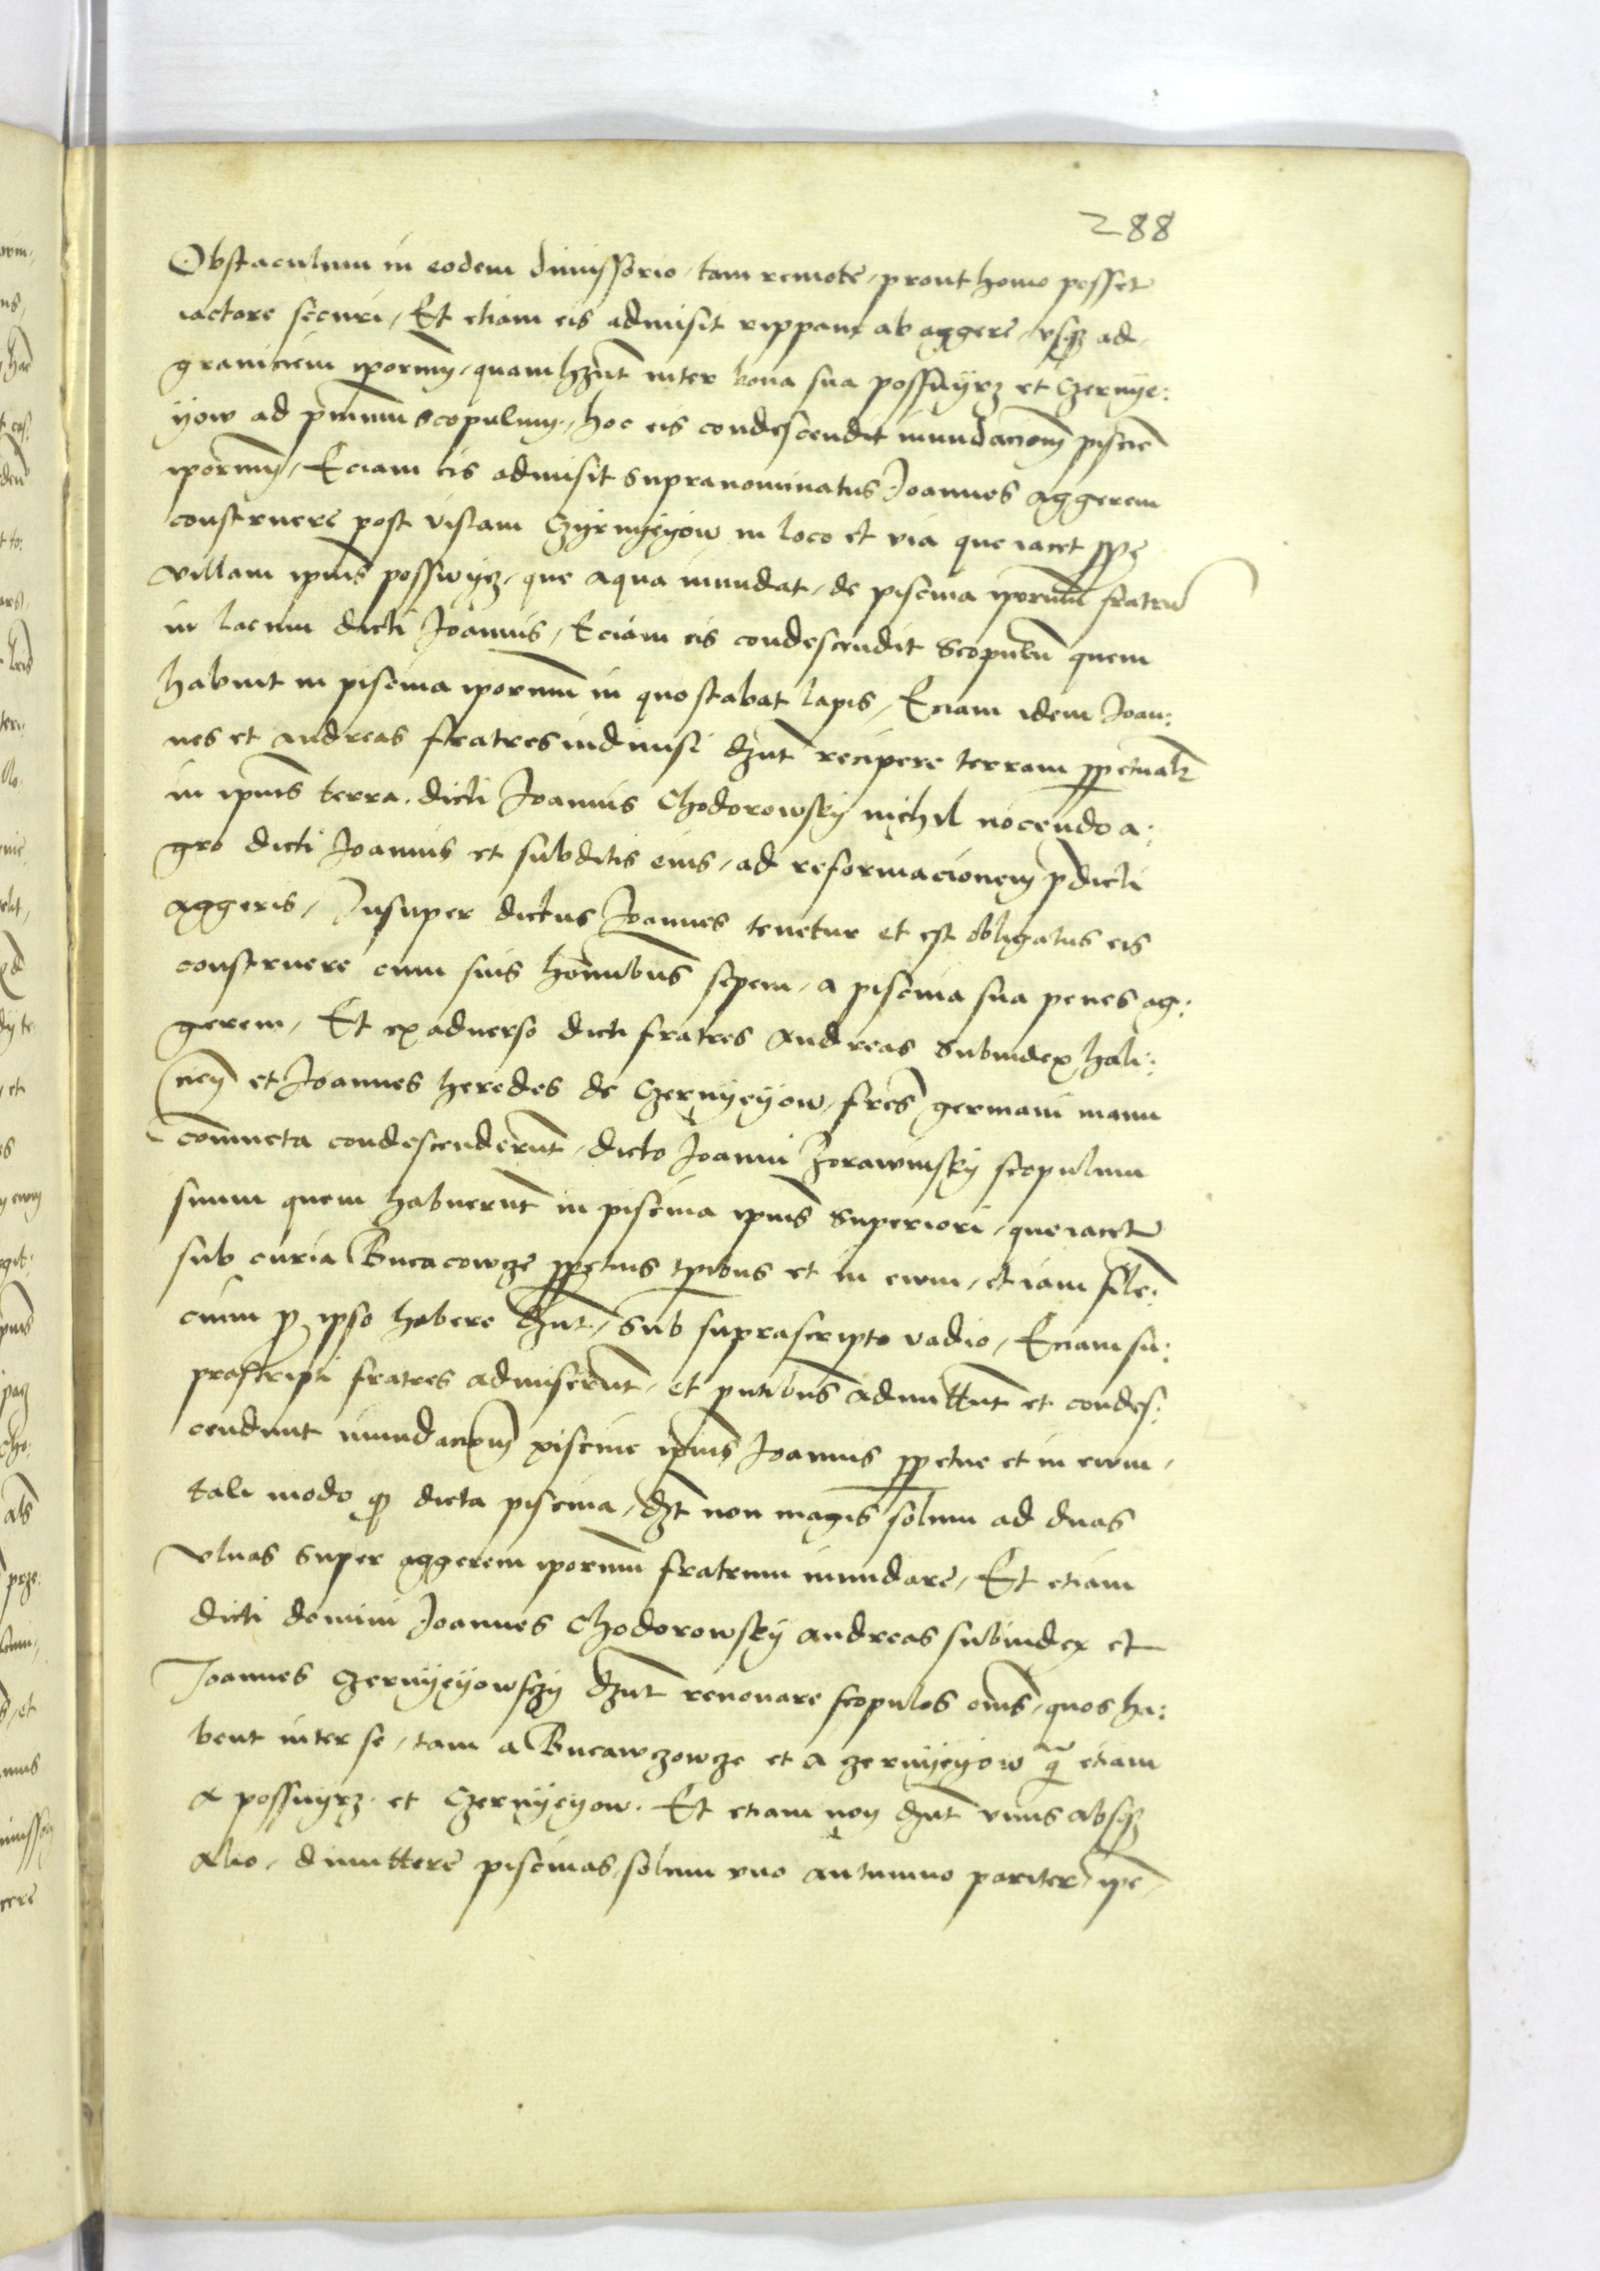 288
Obstaculum in eodem dimissorio, tam remote, prout homo posset
iactare securi, Et etiam eis admisit rippam ab aggere, vsqz ad
graniciem ipormȝ, quam hȝnt inter bona sua possuyrz et Czernye:
yow ad pmum scopulum, hoc eis condescendit inundacionȝ piscie
ipormȝ, Eciam eis admisit supranominatus Joannes aggerem
construere post vistam Czyrnyeyow in loco et via que iacet ppe
villam ipius posswyrz, que aqua inundat, de piscina iporum fratru
in lacum dicti Joannis, Eciam eis condescendit Scopulu quem
habuit in piscina iporum in quo stabat lapis, Eciam idem Joan:
nes et Andreas fratres indiuisi dȝnt recipere terram ppetualr
in ipius terra dicti Joannis Chodorowsky nichil nocendo a:
gro dicti Joannis et subditis eius, ad reformacionem pdicti
aggeris, Insuper dictus Joannes tenetur et est obligatus eis
construere cum suis hominibus sepem, a piscina sua penes ag:
gerem, Et ex aduerso dicti fratres Andreas Subiudex hali:
ceñ et Joannes heredes de Czernyeyow, fres germani manu
coniuncta condescenderunt, dicto Joanni Zorawinsky scopulum
suum quem habuerunt in piscina ipius superiori, que iacet
sub curia Bucacowze ppetuis tpibus et in ewm, et iam sile:
cium p ipso habere dȝnt, Sub suprascripto vadio, Eciam su:
prascripti fratres admiserunt, et pntibus admittunt et condes:
cendunt inundacionȝ piscine ipius Joannis ppetue et in ewm,
tali modo qȝ dicta piscina, dȝt non magis solum ad duas
vlnas super aggerem iporum fratrum inundare, Et etiam
dicti domini Joannes Chodorowsky Andreas subiudex et
Joannes Czernyeyowsczy dȝnt renouare scopulos oms, quos ha:
bent inter se, tam a Bucawczowze et a Czernyeyow q etiam
a possuyrz et Czernyeyow. Et etiam non dȝnt vnus absqz
alio, dimittere piscinas, solum vno autumno pariter, ipe